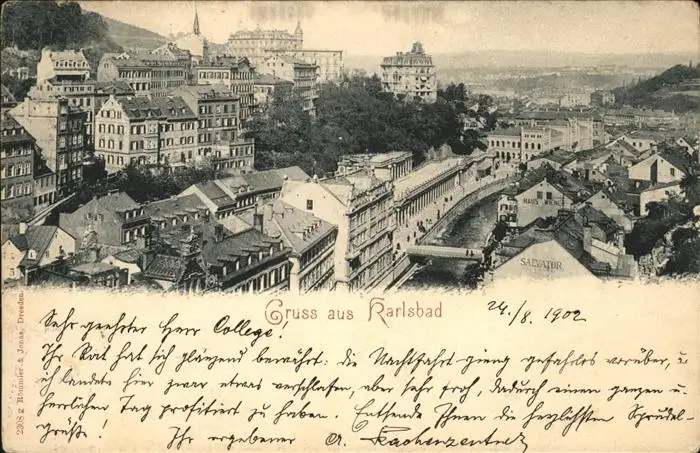 HAUS WIENER
SALVATOR
Gruss aus Karlsbad
24./8. 1902
Sehr geehrter Herr College!
Ihr Rat hat sich glänzend bewährt: die Nachtfahrt gieng gefahrlos vorüber, u.
ich landete hier zwar etwas verschlafen, aber sehr froh, dadurch einen ganzen u.
herrlichen Tag profitiert zu haben. Entsende Ihnen die herzlichsten Sprudel-
grüße! Ihr ergebener
2308 g Römmler & Jonas, Dresden.